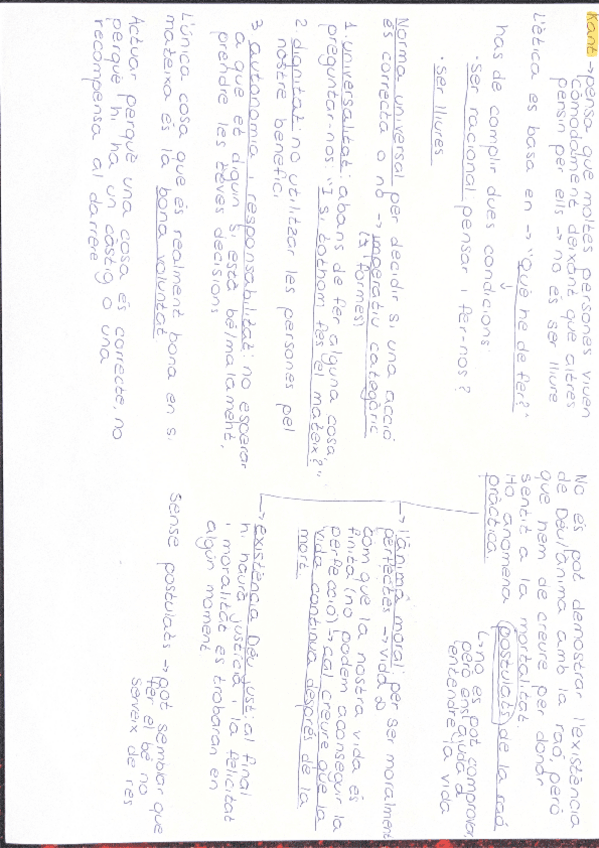 Kant → pensa que moltes persones viuen
còmodament deixant que altres
pensin per ells → no és ser lliure
L'ètica es basa en → "què he de fer?"
↓
has de complir dues condicions
· ser racional pensar i fer-nos?
· ser lliures
Norma universal per decidir si una acció
és correcta o no → imperatiu categòric
(3 formes)
1. universalitat: abans de fer alguna cosa
preguntar-nos "I si tothom fes el mateix?"
2. dignitat: no utilitzar les persones pel
nostre benefici
3. autonomia i responsabilitat: no esperar
a que et diguin si està bé/malament,
prendre les teves decisions
L'única cosa que és realment bona en si
mateixa és la bona voluntat
Actuar perquè una cosa és correcte, no
perquè hi ha un càstig o una
recompensa al darrere
No és pot demostrar l'existència
de Déu/ànima amb la raó, però
que hem de creure per donar
sentit a la mortalitat.
Ho anomena postulats de la raó
pràctica.
↳ no es pot comprovar,
però ens ajuda a
entendre la vida
→ l'ànima moral: per ser moralment
perfectes → vida ∞
com que la nostra vida és
finita (no podem aconseguir la
perfecció) → cal creure que la
vida continua després de la
mort.
→ existència Déu just: al final
hi haurà justícia i la felicitat
i moralitat es trobaran en
algún moment
Sense postulats → pot semblar que
fer el bé no
serveix de res